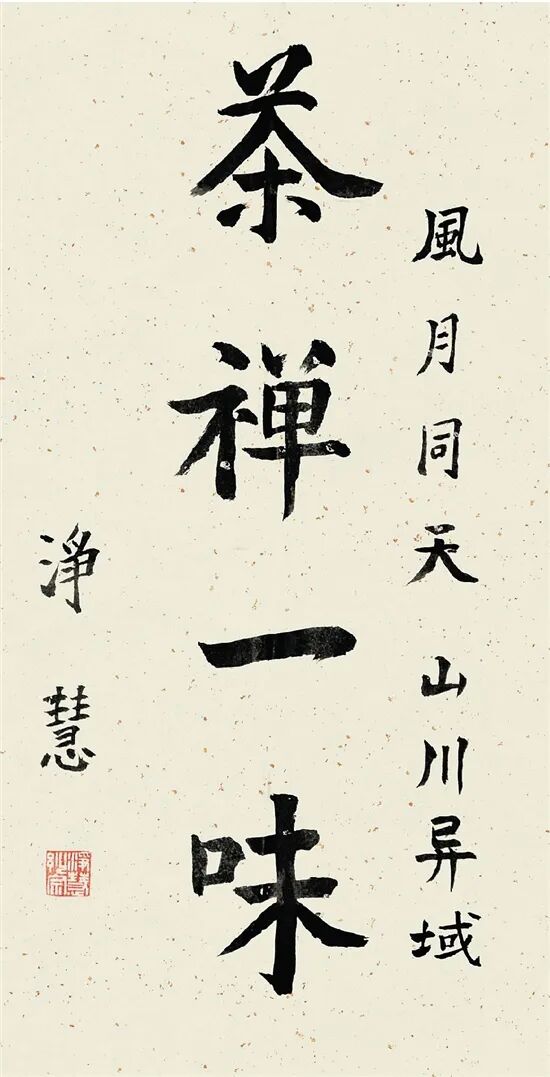 風月同天山川异域
茶禅一味
淨慧